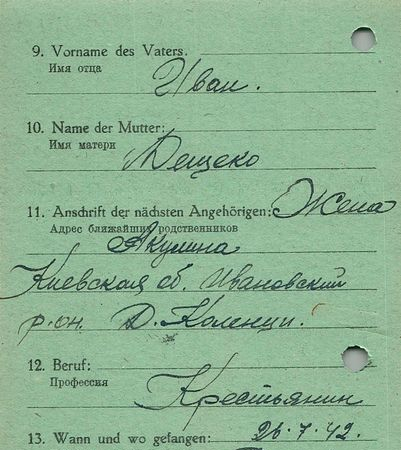 9. Vorname des Vaters.
Имя отца
Иван.
10. Name der Mutter:
Имя матери
Лещеко
11. Anschrift der nächsten Angehörigen: Жена
Адрес ближайших родственников
Акулина
Киевская об. Ивановский
р-он. Д. Коленци.
12. Beruf:
Профессия
Крестьянин
13. Wann und wo gefangen: 26.7.42.